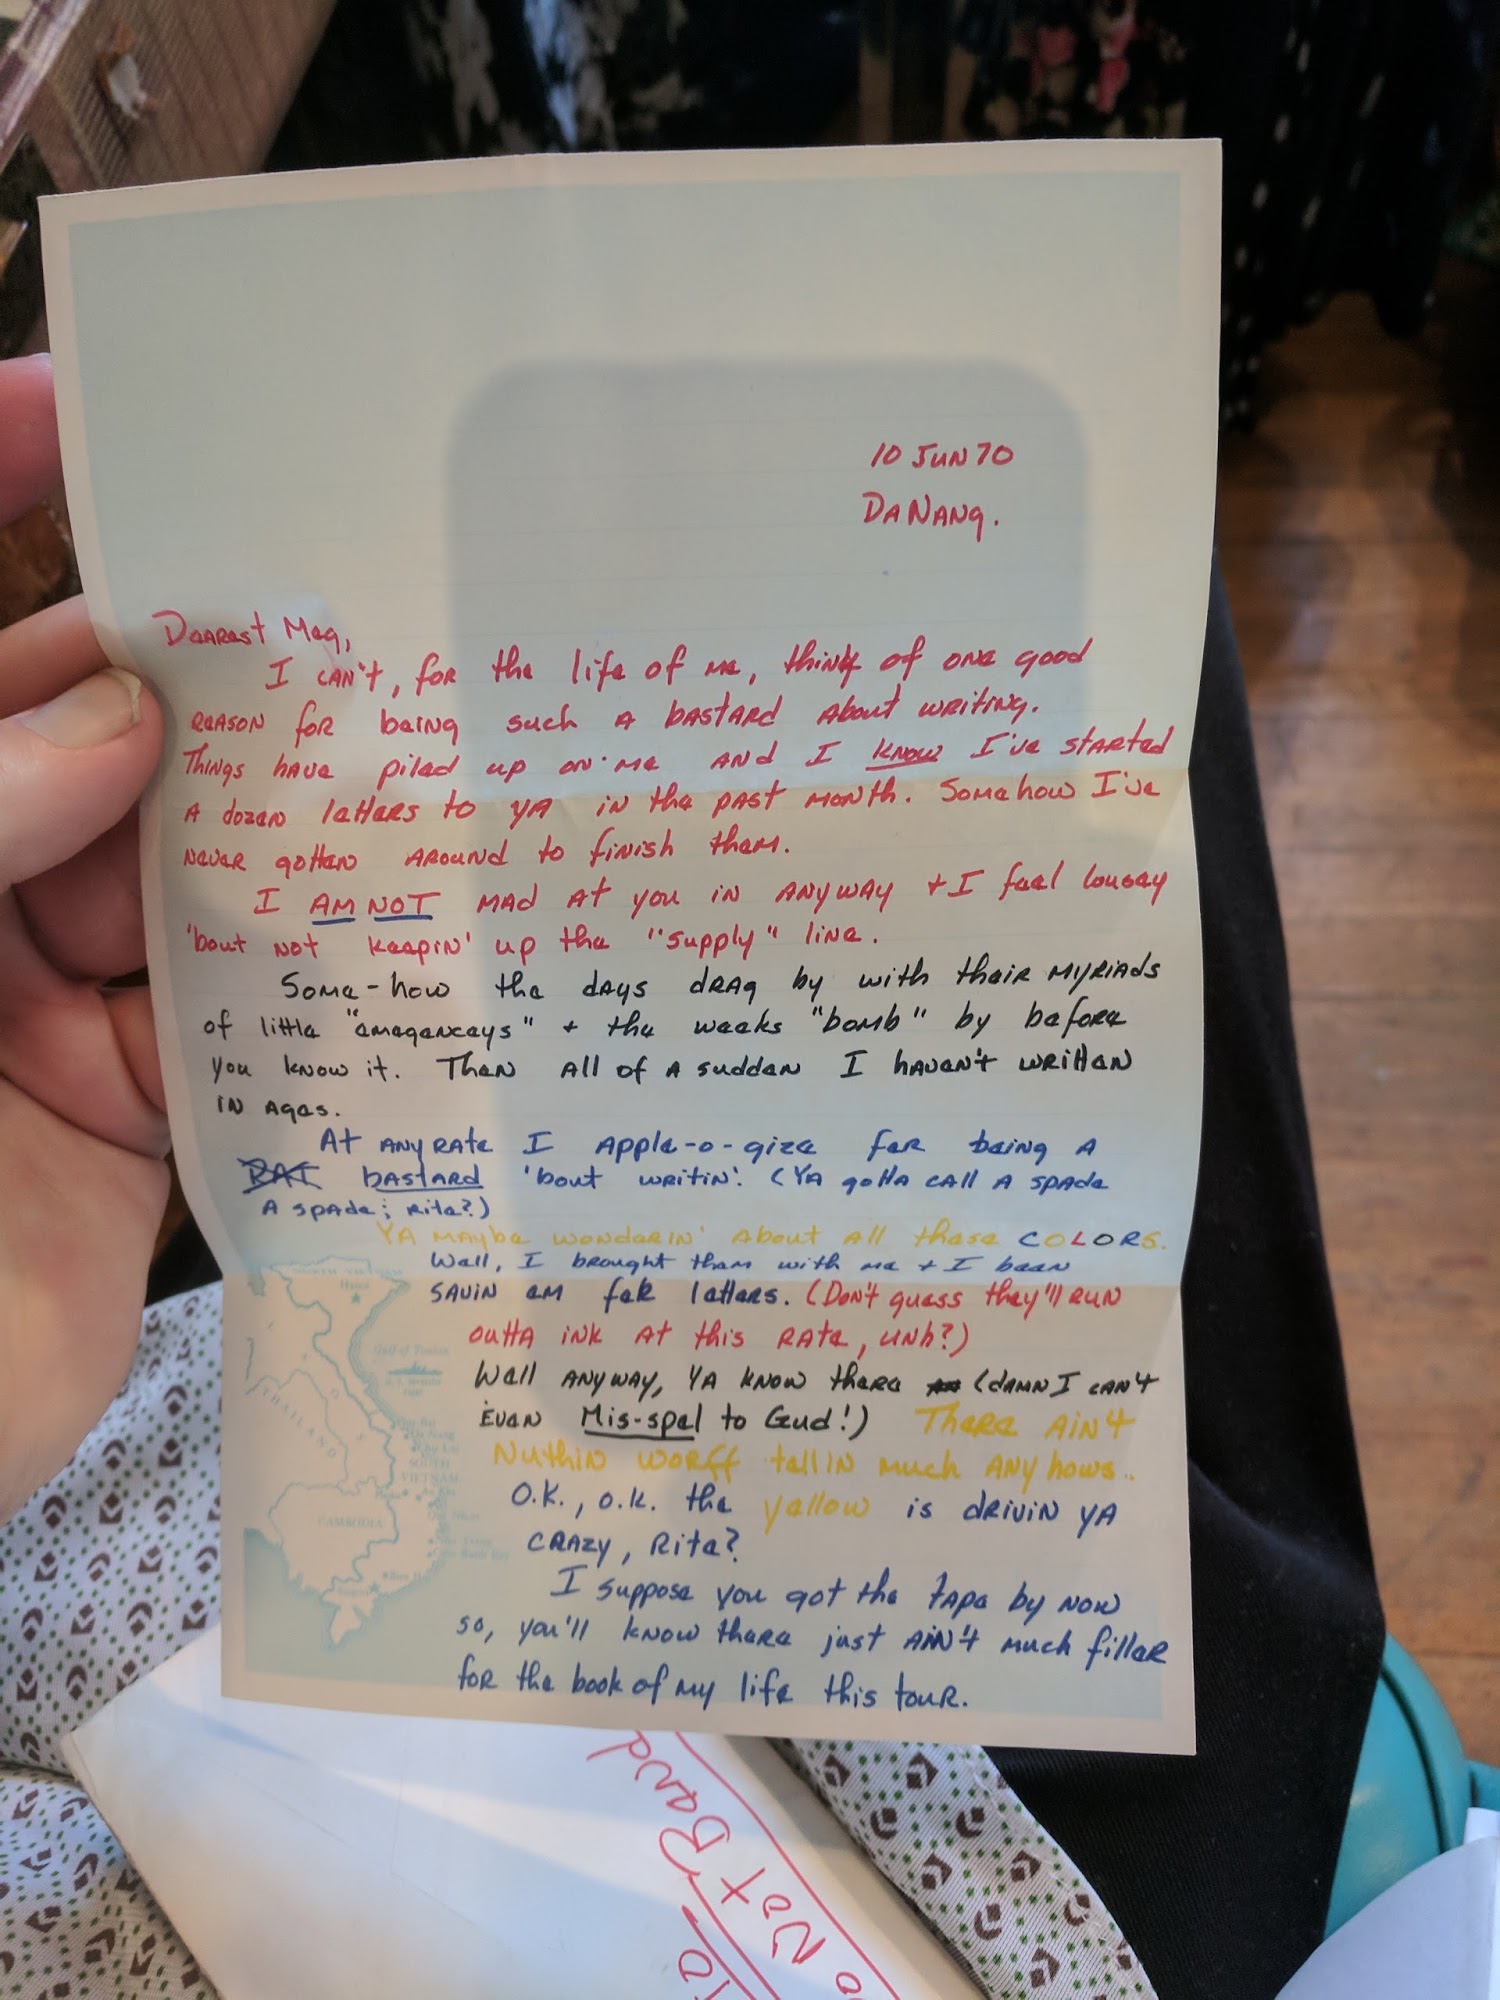 10 JUN 70
DA NANG.
Dearest Meg,
I can't, for the life of me, think of one good
reason for being such a bastard about writing.
Things have piled up on me and I know I've started
a dozen letters to ya in the past month. Somehow I've
never gotten around to finish them.
I AM NOT mad at you in anyway + I feel lousey
'bout not keepin' up the "supply" line.
Some-how the days drag by with their myriads
of little "emegenceys" + the weeks "bomb" by before
you know it. Then all of a sudden I haven't written
in ages.
At anyrate I apple-o-gize fer being a
RAT bastard 'bout writin'. (Ya gotta call a spade
a spade; Rite?)
Ya maybe wonderin' about all these COLORS.
Well, I brought them with me + I been
savin em fer letters. (Don't guess they'll run
outta ink at this rate, unh?)
Well anyway, ya know there (damn I can't
even Mis-spel to Gud!) There ain't
nuthin worff tellin much any hows..
O.K., O.K. the yellow is drivin ya
crazy, Rite?
I suppose you got the tape by now
so, you'll know there just ain't much filler
for the book of my life this tour.
NORTH VIETNAM
Hanoi
Gulf of Tonkin
THAILAND
SOUTH
VIETNAM
CAMBODIA
Do Not Band